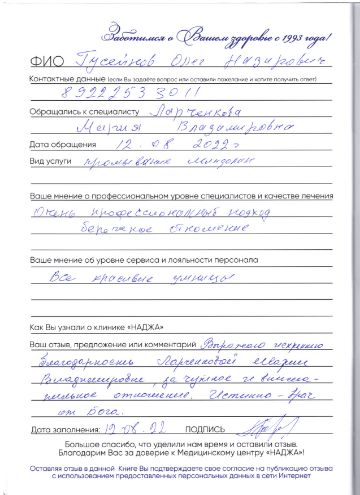 Заботимся о Вашем здоровье с 1993 года!
ФИО Гусейнов Олег Назирович
Контактные данные (если Вы задаёте вопрос или оставили пожелание и хотите получить ответ)
89222533011
Обращались к специалисту Ларченкова
Мария Владимировна
Дата обращения 12.08.2022г
Вид услуги промывание миндалин
Ваше мнение о профессиональном уровне специалистов и качестве лечения
Очень профессиональный подход
бережное отношение
Ваше мнение об уровне сервиса и лояльности персонала
Все красивые умницы
Как Вы узнали о клинике «НАДЖА»
Ваш отзыв, предложение или комментарий Выражаю искреннюю
благодарность Ларченковой Марии
Владимировне за чуткое и внима-
тельное отношение. Истинно-врач
от Бога.
Дата заполнения: 12.08.22 ПОДПИСЬ
Большое спасибо, что уделили нам время и оставили отзыв.
Благодарим Вас за доверие к Медицинскому центру «НАДЖА»!
Оставляя отзыв в данной Книге Вы подтверждаете свое согласие на публикацию отзыва
с использованием предоставленных персональных данных в сети Интернет